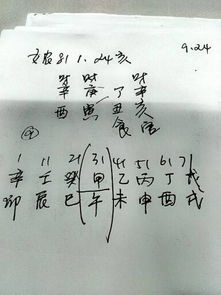 女農81 1. 24亥
9.24
財 財 財
辛 庚 丁 辛
酉 寅 丑 亥
食 官
1 11 21 31 41 51 61 71
辛 壬 癸 甲 乙 丙 丁 戊
卯 辰 巳 午 未 申 酉 戌